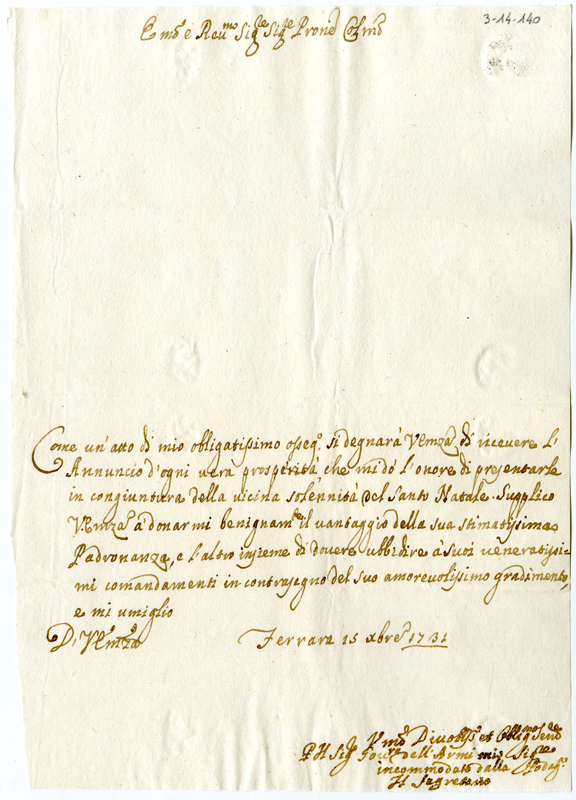 3-14-140
Emo e Reumo Sigre Sigre Prone Colmo
Come un'atto di mio obligatissimo osseqo si degnarà VEmza di riceuere l'
Annuncio d'ogni uera prosperità che mi dò l'onore di presentarle
in congiuntura della uicina solennità del Santo Natale. Supplico
VEmza à donarmi benignamte il uantaggio della sua stimatissima
Padronanza, e l'altro insieme di douere ubbidire à suoi ueneratissi-
mi comandamenti in contrasegno del suo amoreuolissimo gradimento,
e mi umiglio
Di VEmza Ferrara 15 xbre 1731
Vmo Diuotmo et Obligmo Sere
P Il Sigr Gour dell'Armi mio Sigre
incommodato dalla Podaga
Il Segretario